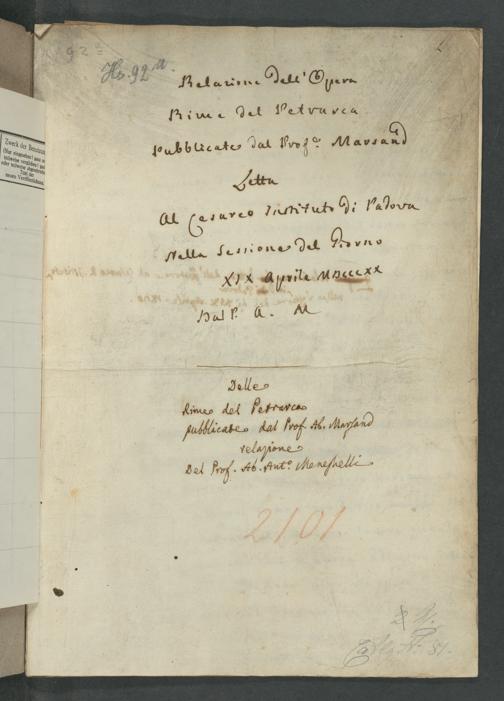 Hs. 92
Relazione dell'Opera
Rime del Petrarca
Pubblicate dal Prof.e Marsand
Letta
Al Cesareo Instituto di Padova
Nella Sessione del Giorno
XIX Aprile MDCCCXX
Dal P. A. M
Delle
Rime del Petrarca
pubblicate dal Prof. Ab. Marsand
relazione
Del Prof. Ab. Ant.o Meneghelli
2101.
Zweck der Benutzung